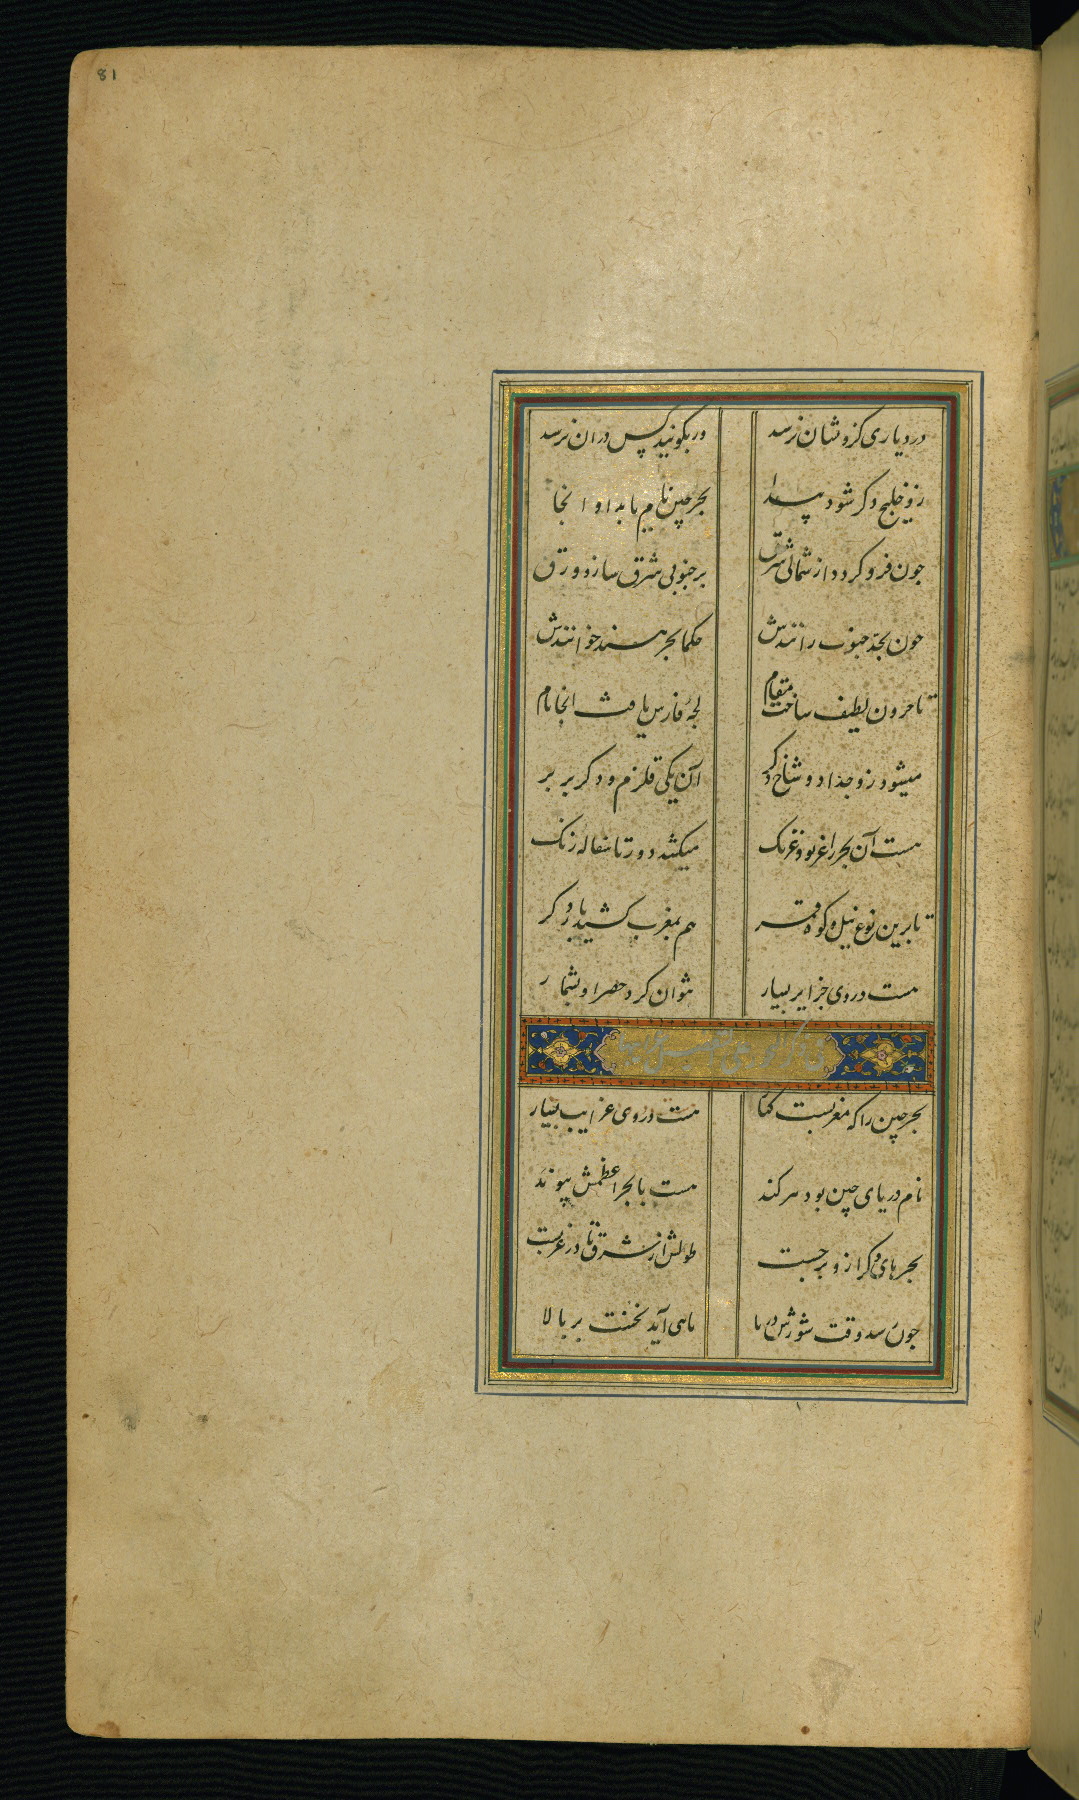 81
در دیاری کزو نشان نرسد ور بگویند کس در آن نرسد
زو خلیج دکر شود پیدا بحر چین نام یابد او انجا
چون فرو کردد از شمالی شرق بر جنوبی شرق سازد ورق
چون بحد جنوب رانندش حکما بحر هند خوانندش
تا حرون لطیف ساخت مقام لجه فارس یافت انجا نام
میشود زو جدا دو شاخ دکر آن یکی قلزم و دکر بربر
هست آن بحر را میکشد دور تا سفاله زنک
تا برین نوع نیل و کوه قمر هم بمغرب کشید بار دکر
هست در وی جزایر بسیار نتوان کرد حصر او بشمار
بحر چین را که مغربست کنار هست در وی غرایب بسیار
نام دریای چین بود هرکند هست با بحر اعظمش پیوند
بحرهای دکر ازو برجست طولش از شرق تا در غربست
چون رسد وقت شورش دریا ماهی آید نخست بر بالا